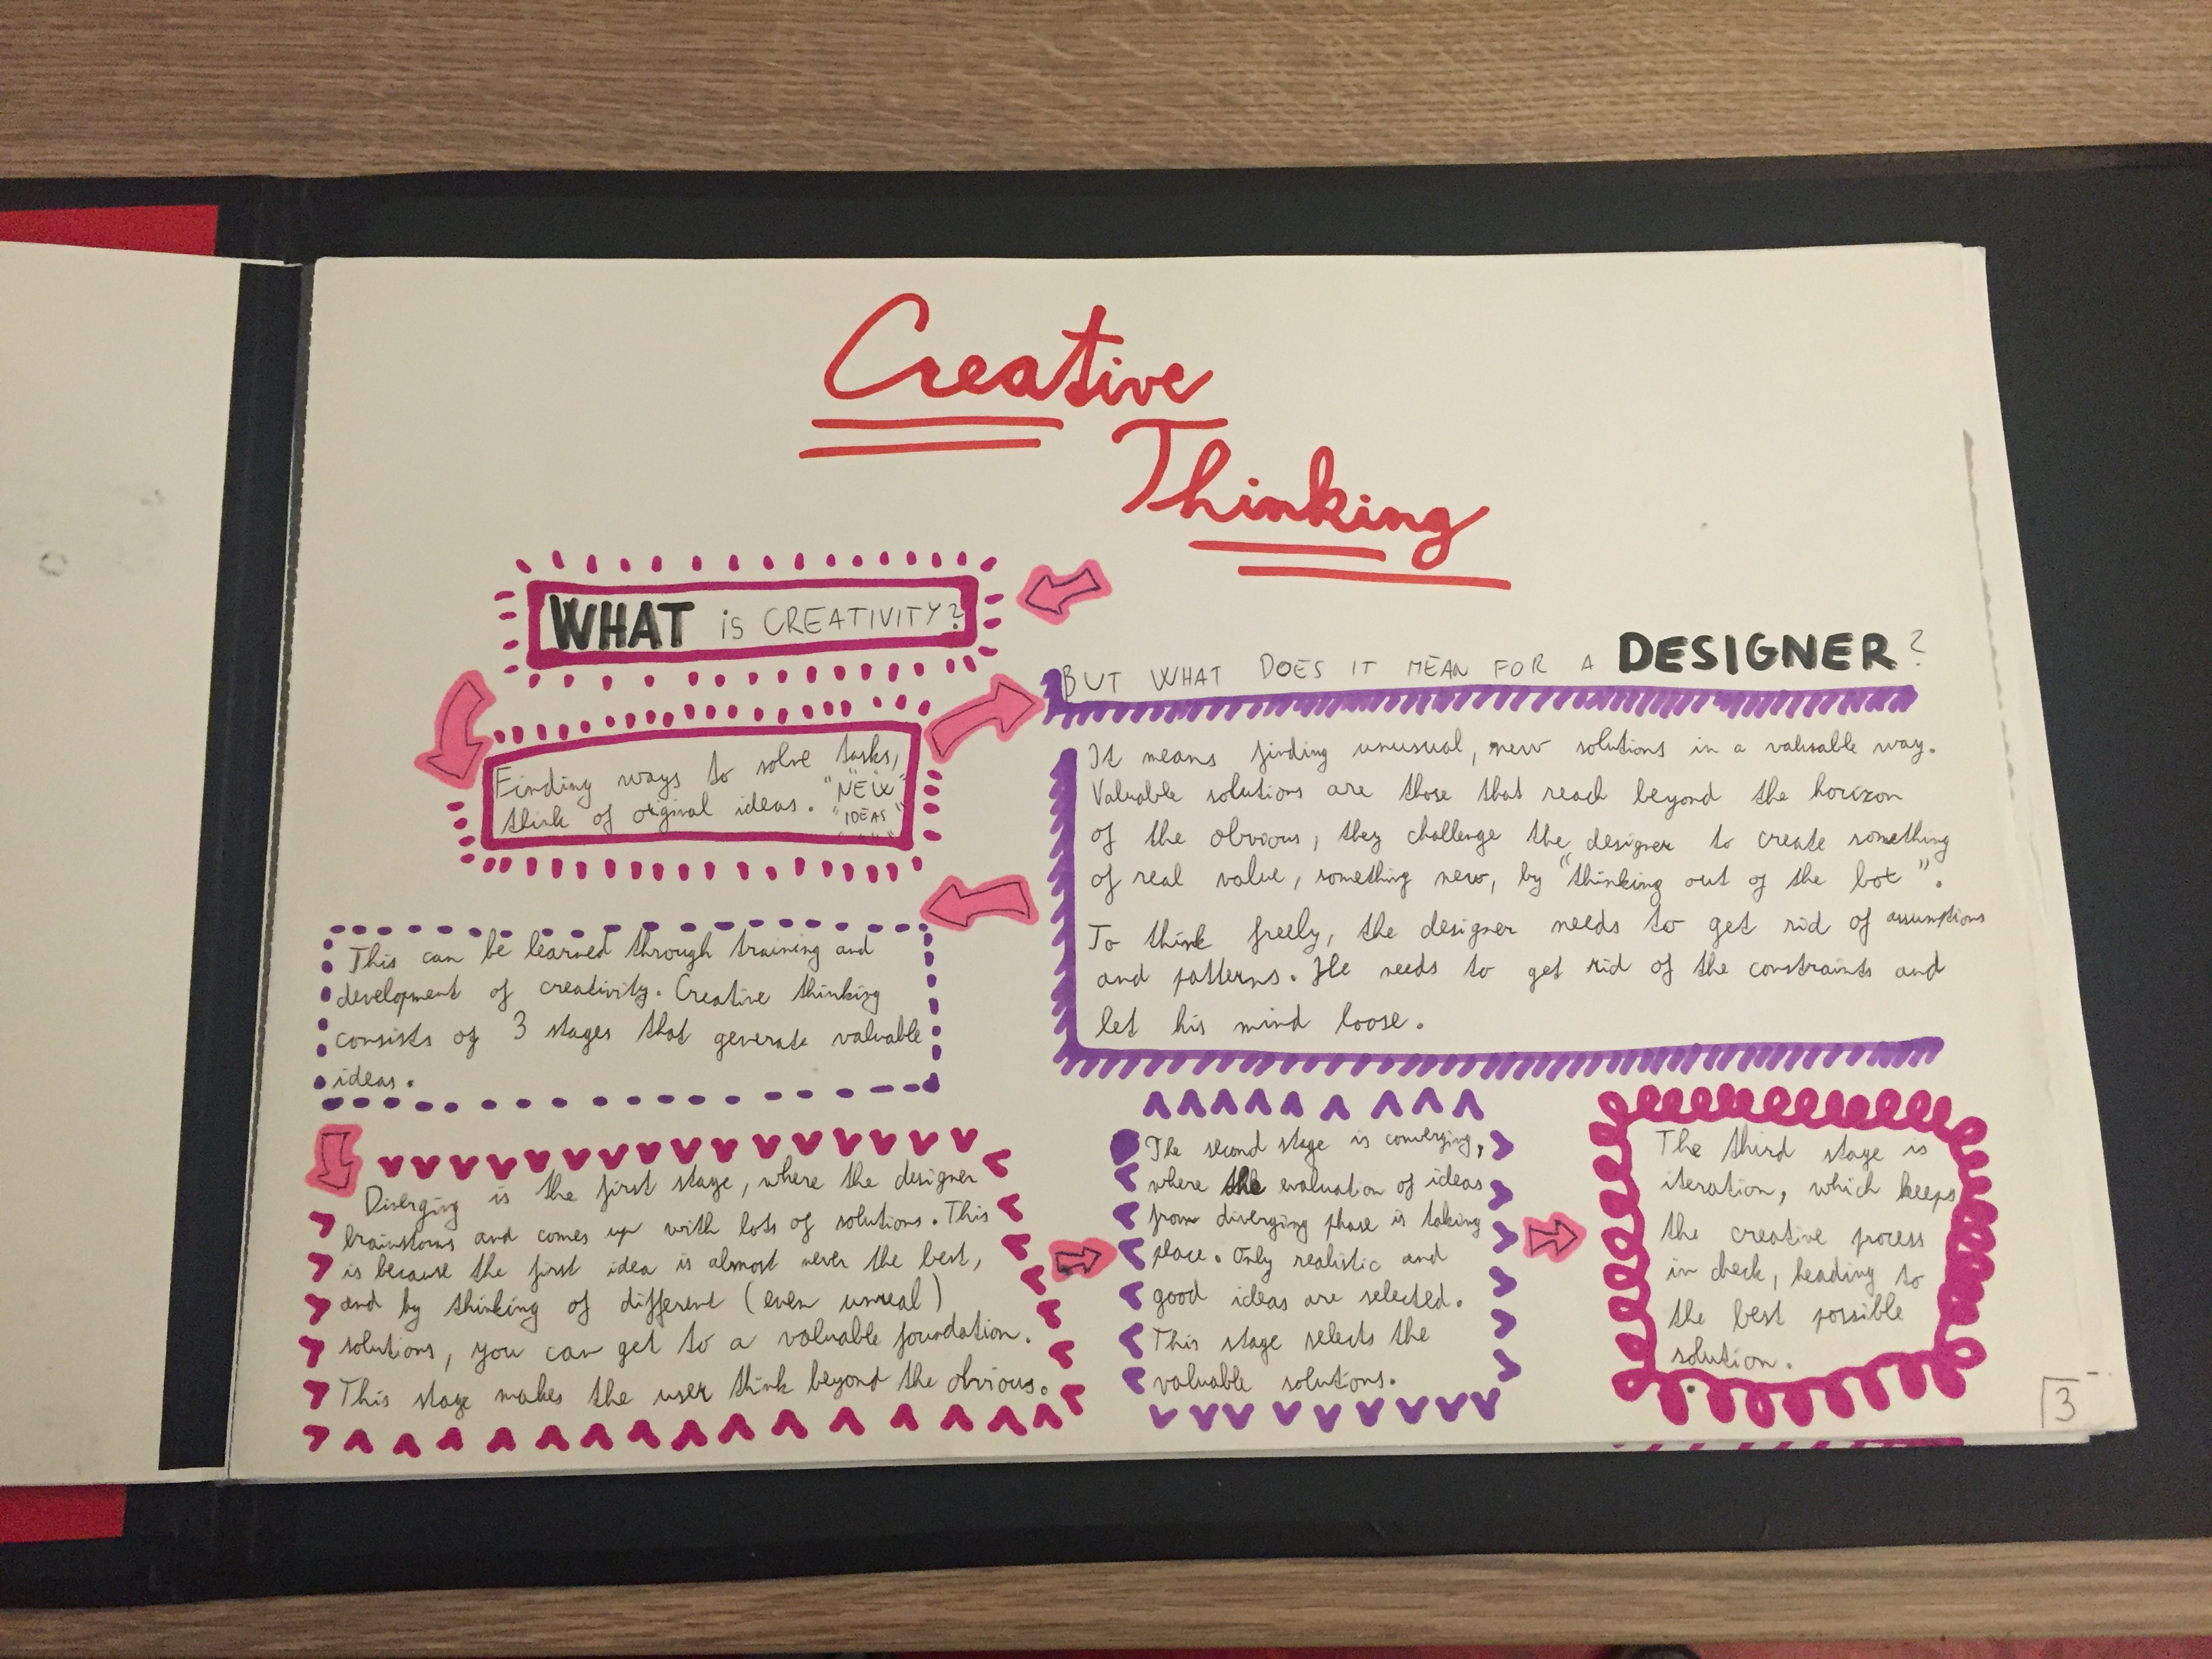 Creative
Thinking
WHAT is CREATIVITY?
Finding ways to solve tasks,
think of original ideas. "NEW
"IDEAS"
BUT WHAT DOES IT MEAN FOR A DESIGNER?
It means finding unusual, new solutions in a valuable way.
Valuable solutions are those that reach beyond the horizon
of the obvious, they challenge the designer to create something
of real value, something new, by "thinking out of the box".
To think freely, the designer needs to get rid of assumptions
and patterns. He needs to get rid of the constraints and
let his mind loose.
This can be learned through training and
development of creativity. Creative thinking
consists of 3 stages that generate valuable
ideas.
Diverging is the first stage, where the designer
brainstorms and comes up with lots of solutions. This
is because the first idea is almost never the best,
and by thinking of different (even unreal)
solutions, you can get to a valuable foundation.
This stage makes the user think beyond the obvious.
The second stage is converging,
where the evaluation of ideas
from diverging phase is taking
place. Only realistic and
good ideas are selected.
This stage selects the
valuable solutions.
The third stage is
iteration, which keeps
the creative process
in check, heading to
the best possible
solution.
3